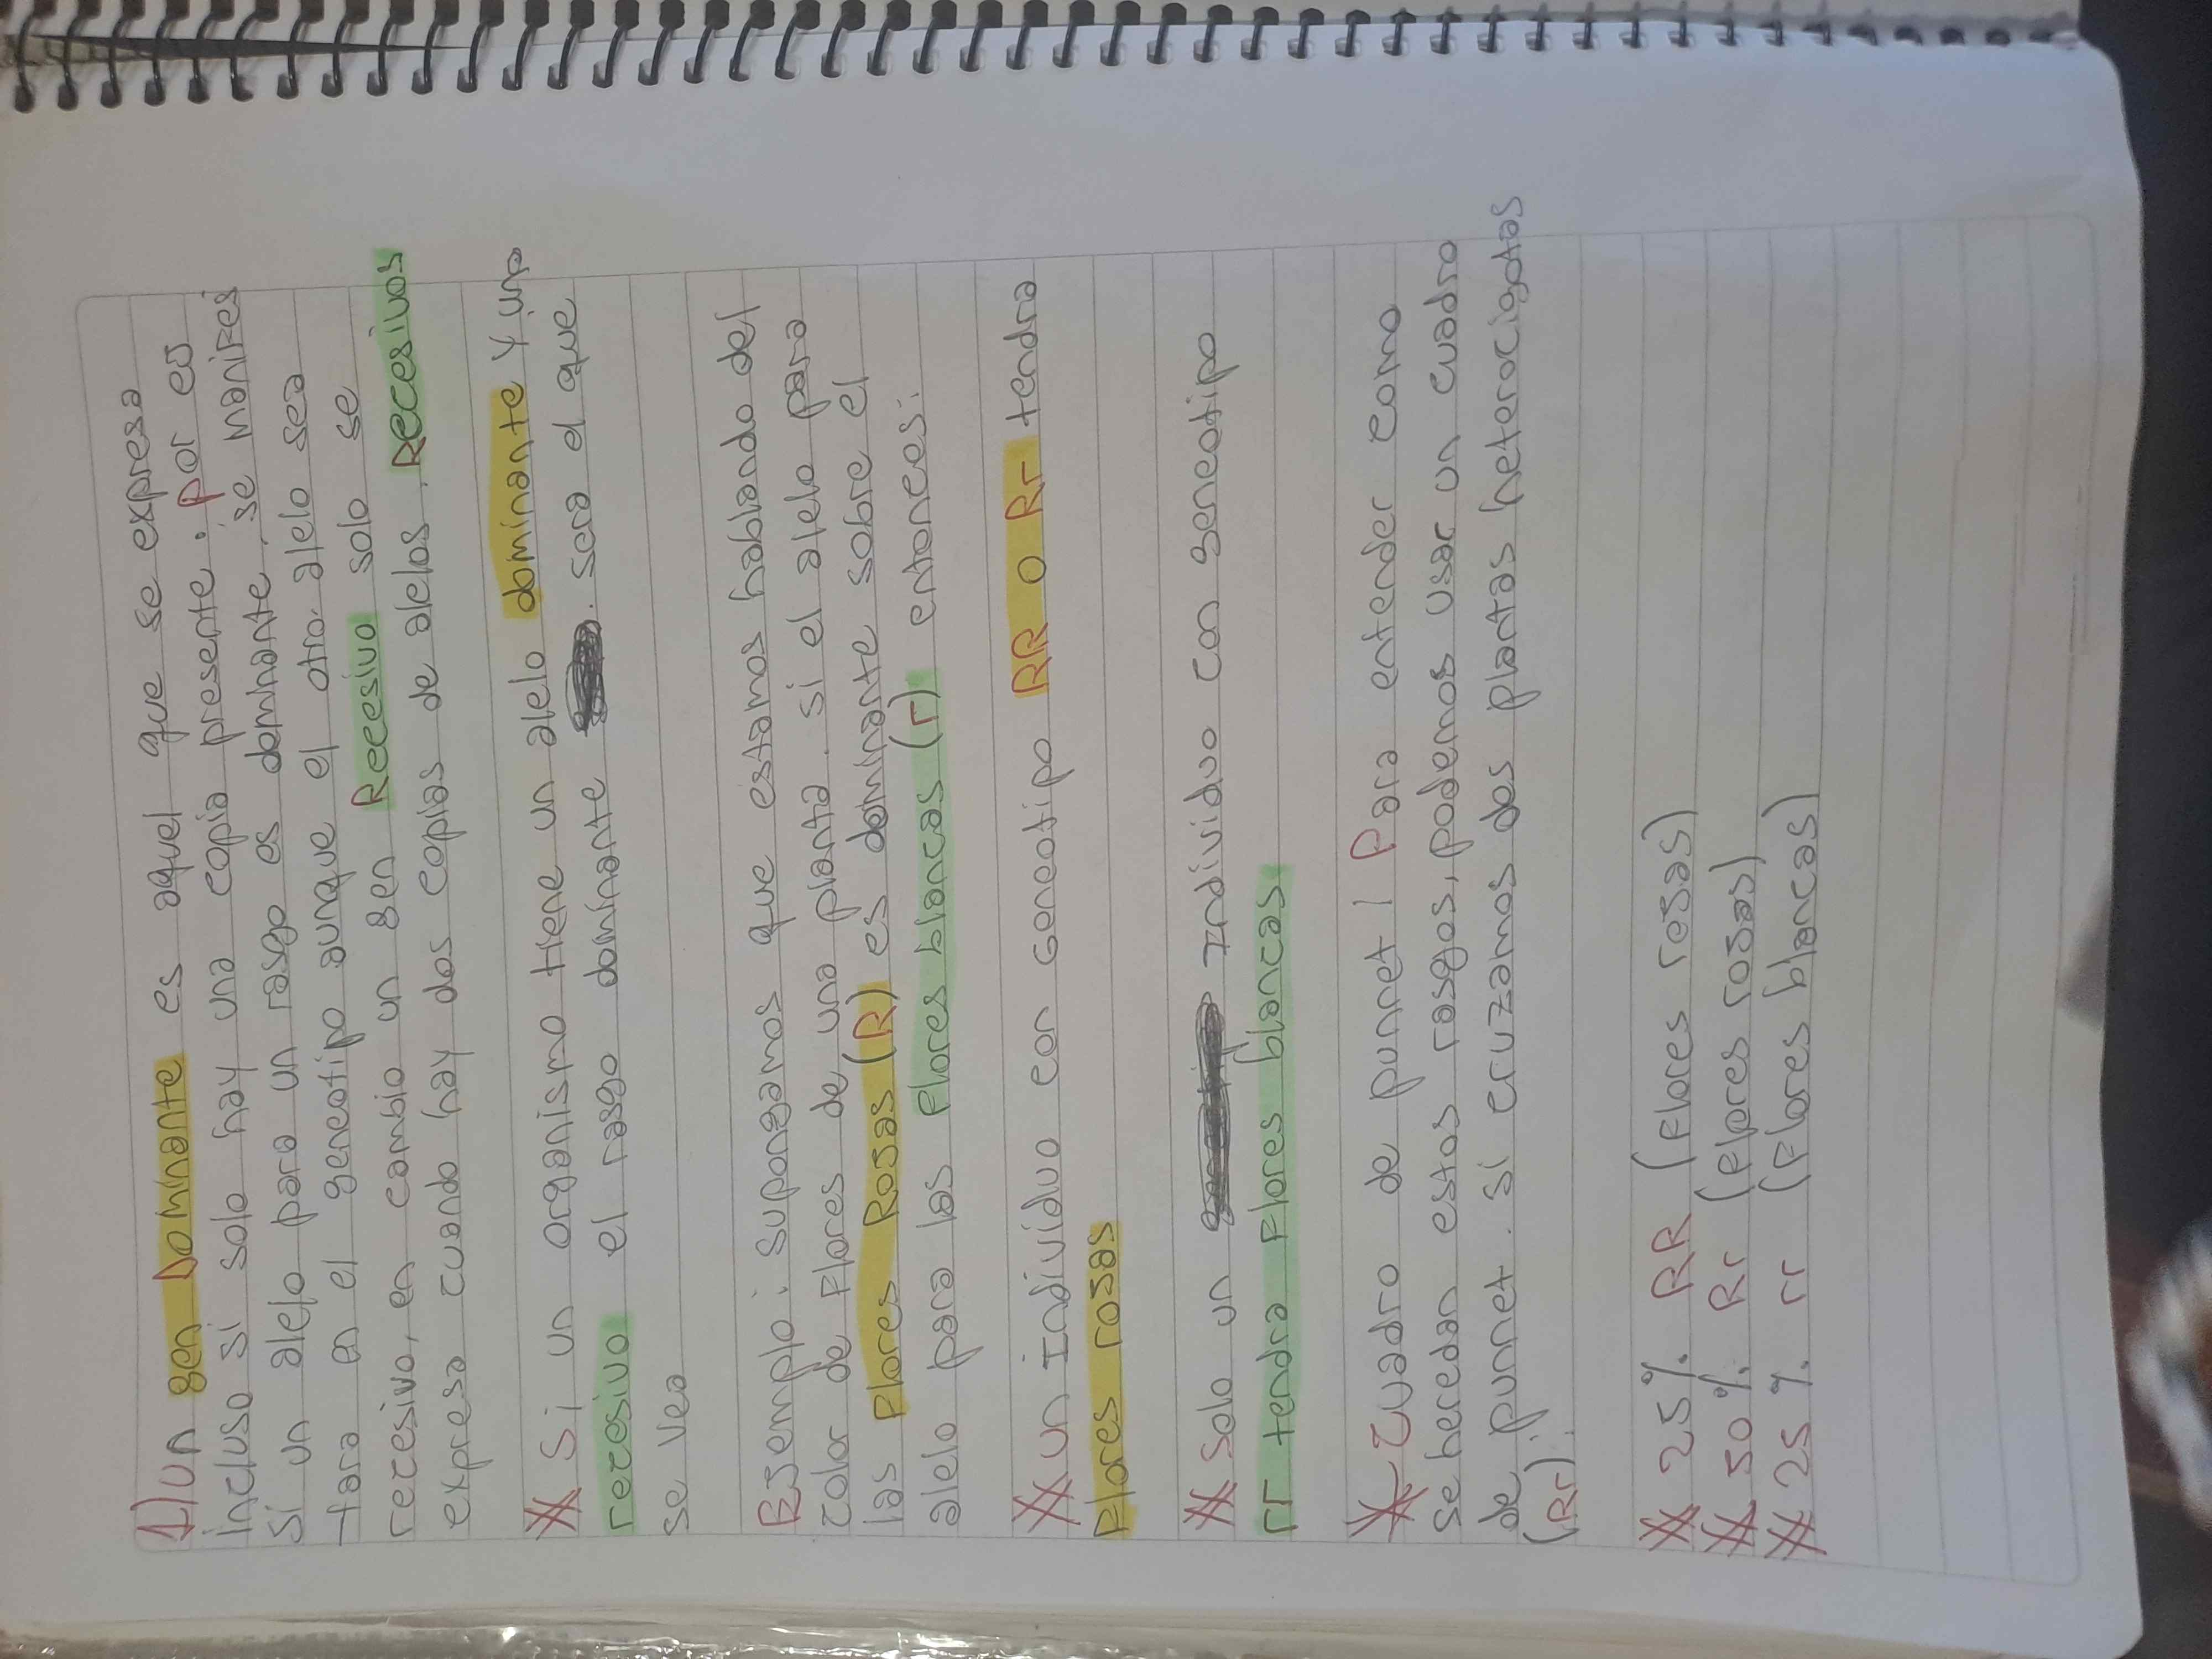 1) un gen Dominante es aquel que se expresa
incluso si solo hay una copia presente. por es
si un alelo para un rasgo es dominante, se manifes
tara en el geneotipo aunque el otro alelo sea
recesivo, en cambio un gen Recesivo solo se
expresa cuando hay dos copias de alelos Recesivos
* Si un organismo tiene un alelo dominante y uno
recesivo el rasgo dominante . sera el que
se vea
Ejemplo: supongamos que estamos hablando del
color de Flores de una planta. si el alelo para
las Flores Rosas (R) es dominante sobre el
alelo para las Flores blancas (r) entonces:
* un individuo con geneotipo RR o Rr tendra
Flores rosas
* Solo un individuo con geneotipo
rr tendra Flores blancas
* Cuadro de punnet / Para entender como
se heredan estos rasgos, podemos usar un cuadro
de punnet. si cruzamos dos plantas heterocigotas
(Rr).
* 25% RR (Flores rosas)
* 50% Rr (Flores rosas)
* 25% rr (Flores blancas)